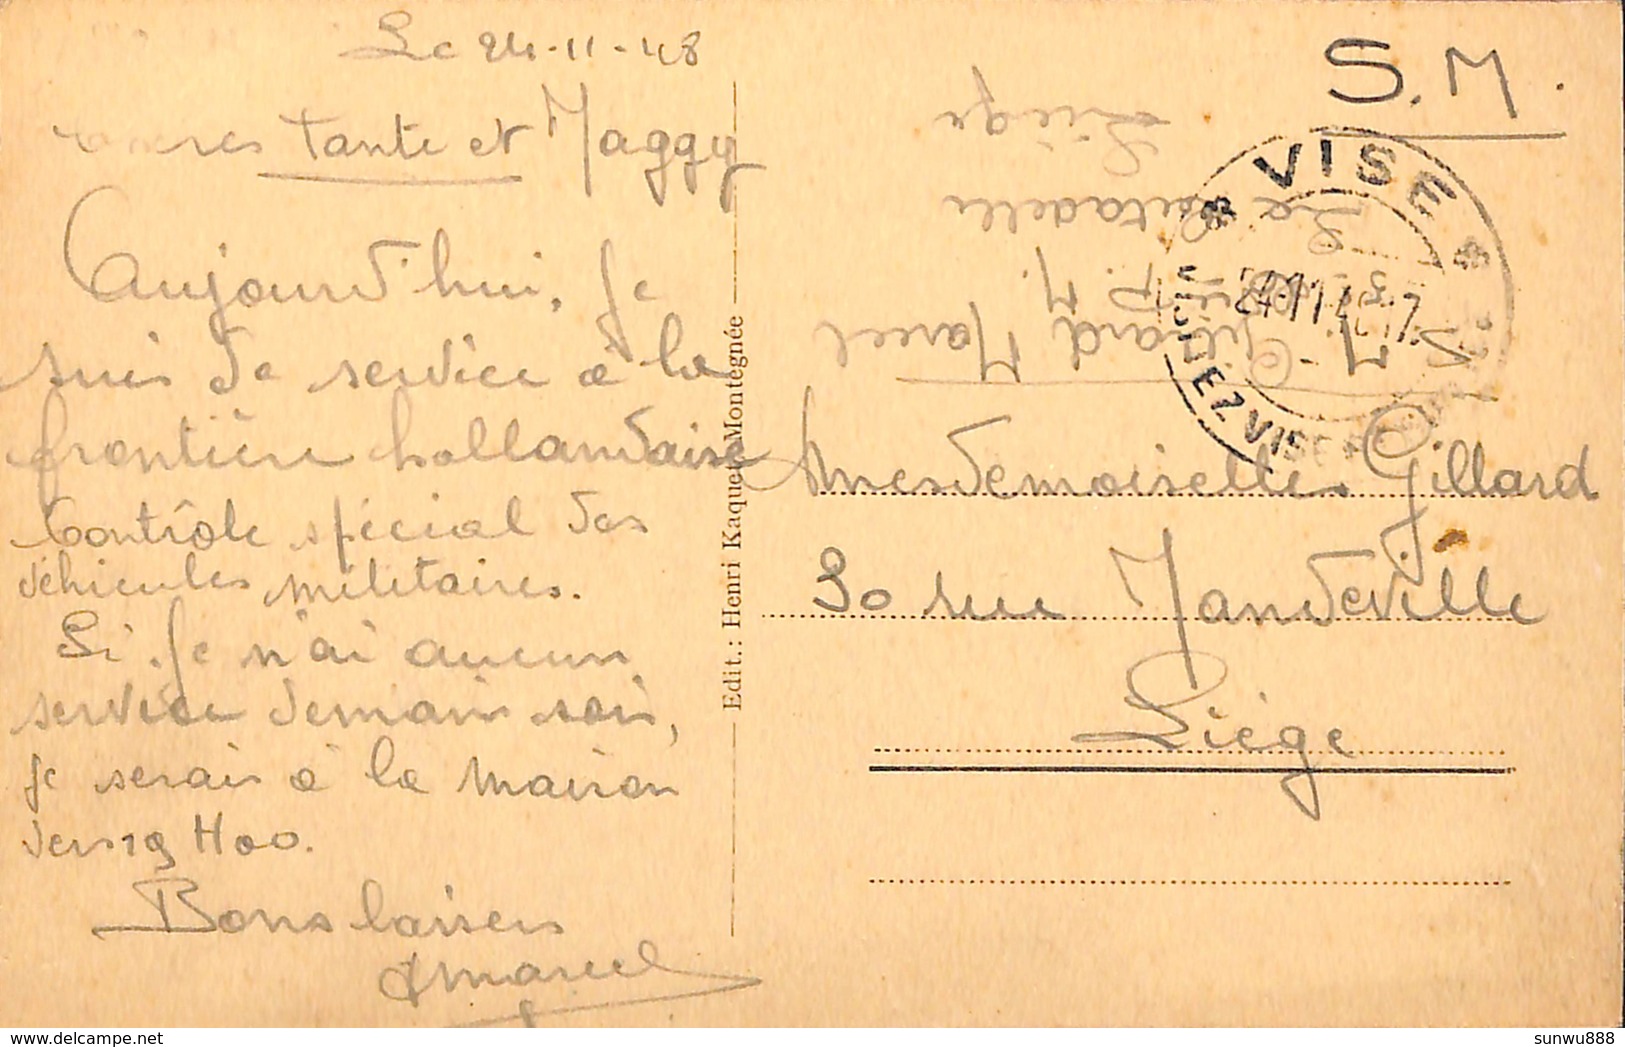 Le 24-11-48
Chères Tante et Maggy
Aujourd'hui, je
suis de service à la
frontière hollandaise
Contrôle spécial des
véhicules militaires.
Si je n'ai aucun
service demain soir,
je serais à la maison
vers 19 H00.
Bons baisers
Marcel
Edit.: Henri Kaquet, Montegnée
S.M.
VISE
VISE
Mesdemoiselles Gillard
30 rue Mandeville
Liège
M. Gillard Marcel
La Citadelle
Liège
sunwu888